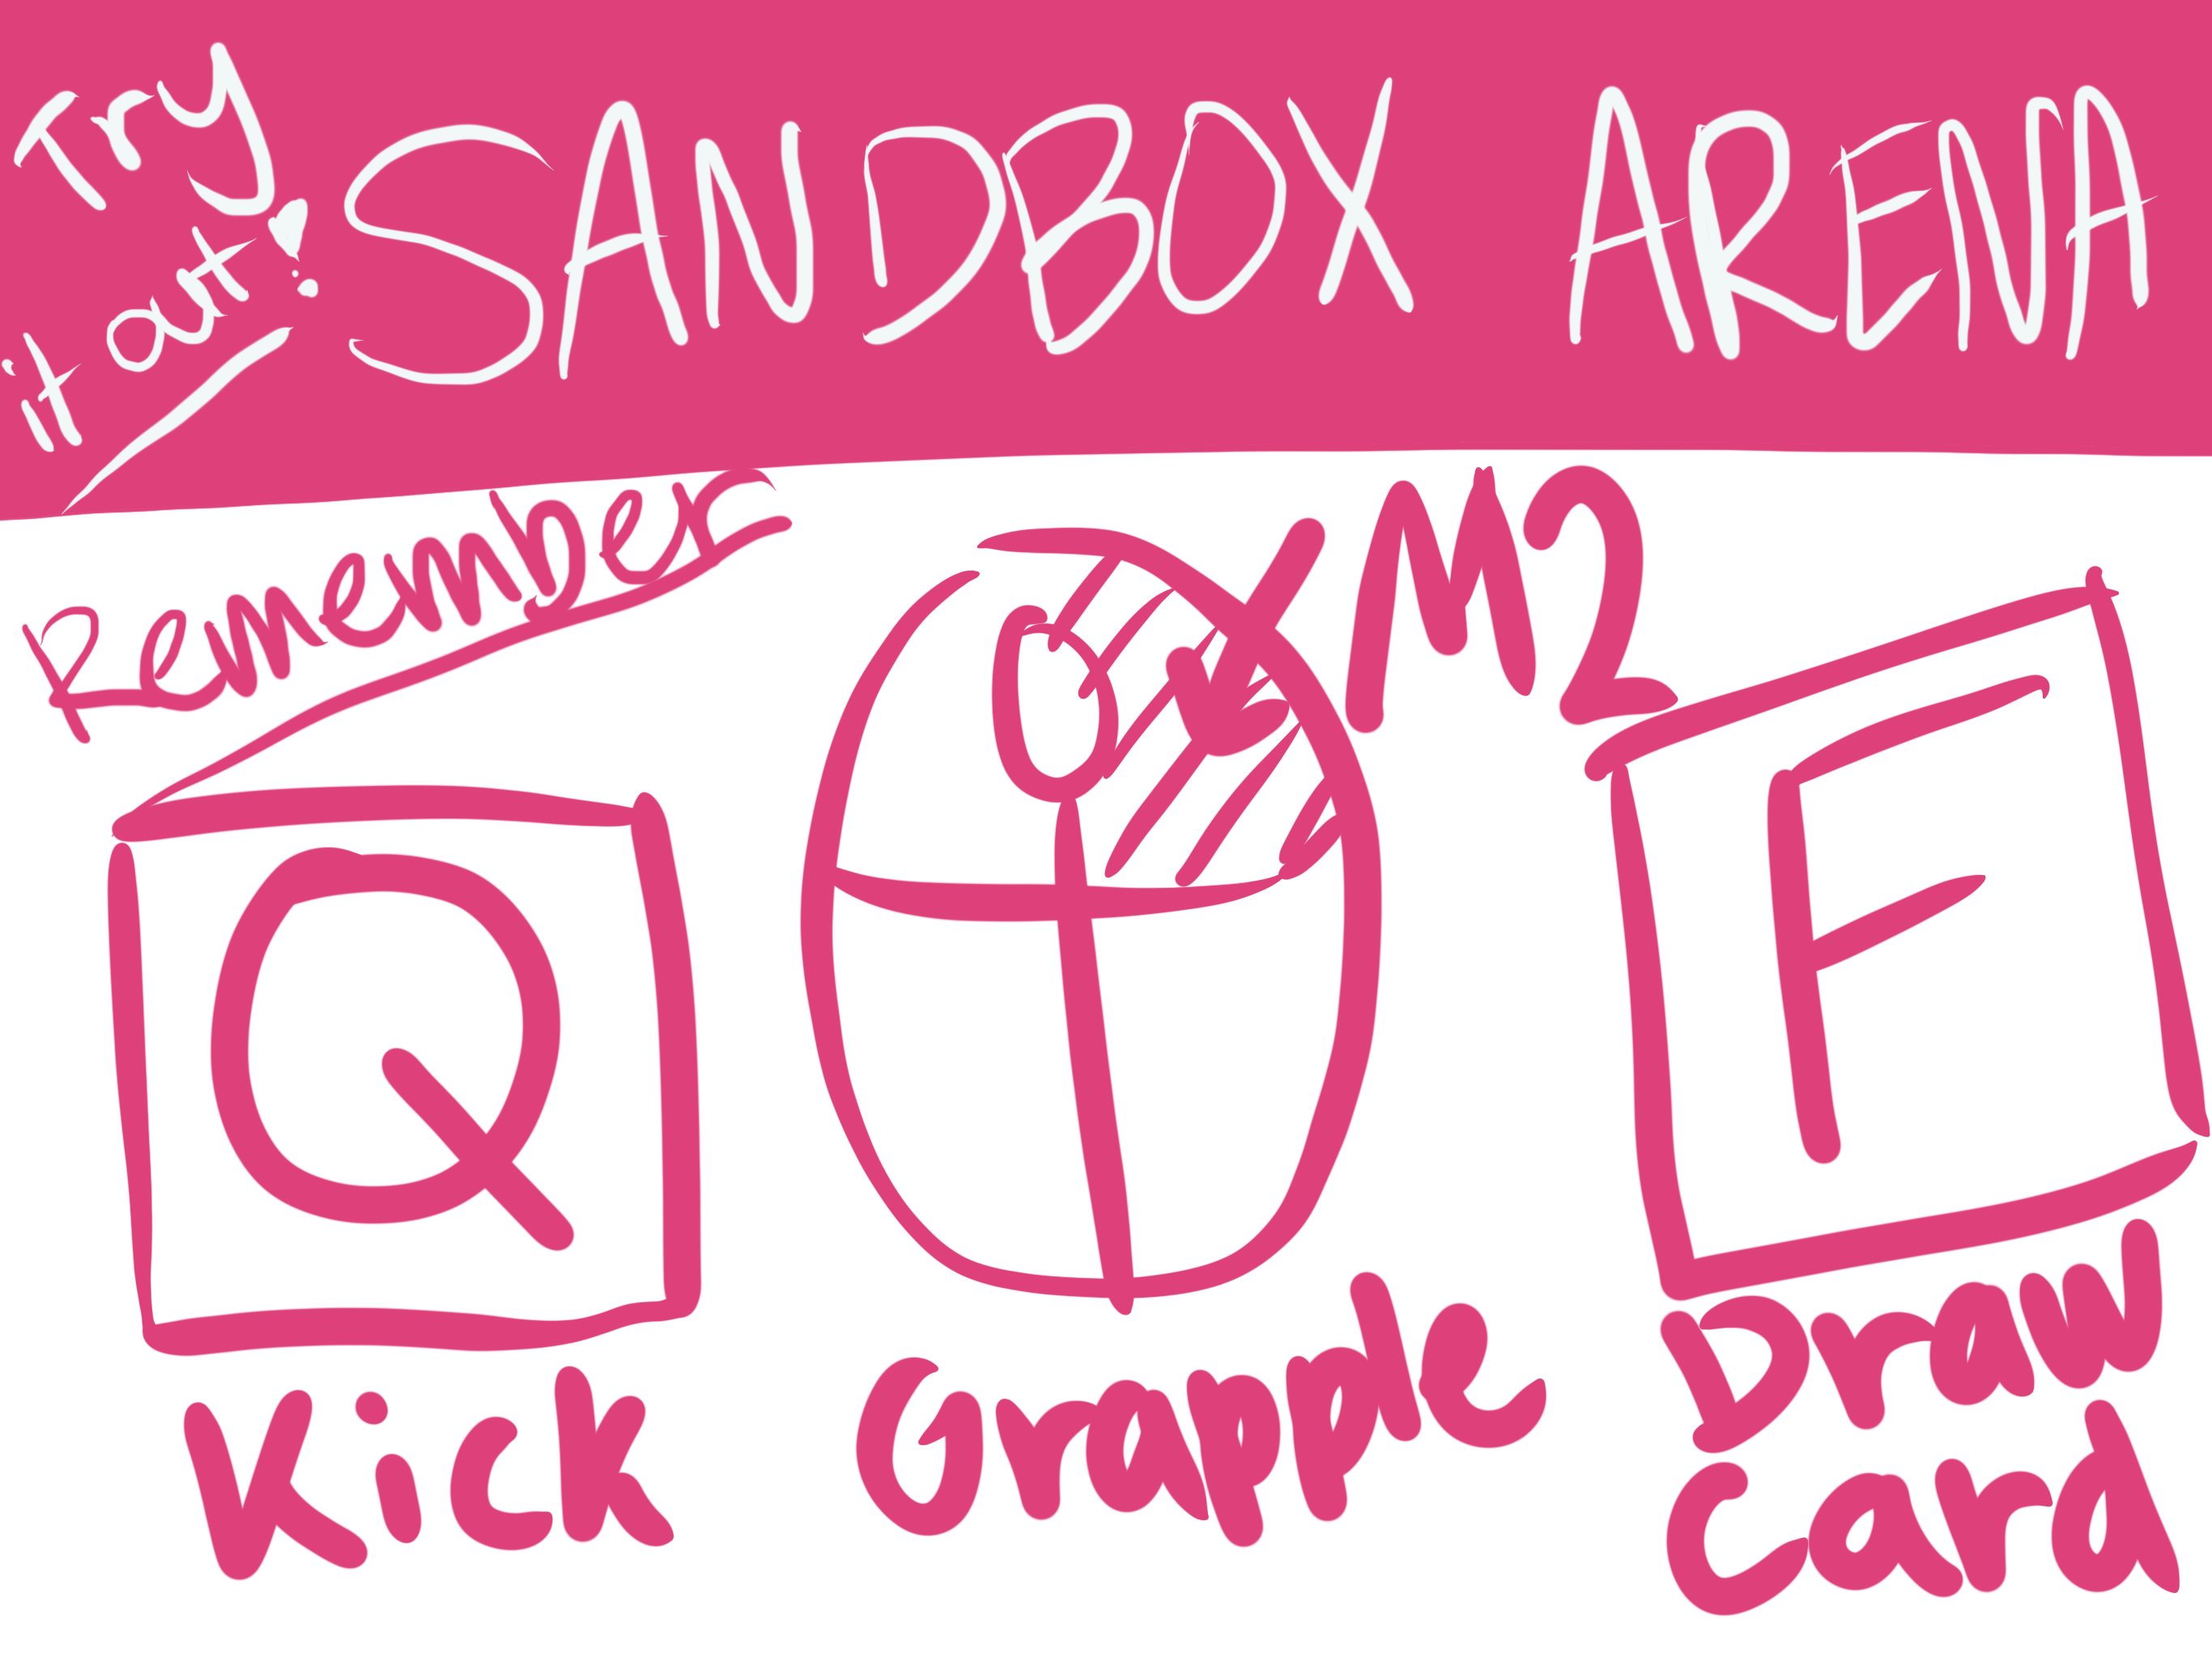 Try
it out!
SANDBOX ARENA
Remember
M2
Q
F
Kick
Grapple
Draw
Card